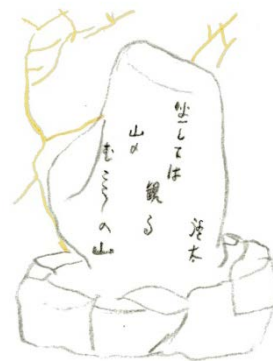 坐しては
観る
山の
むこうの山
澄太